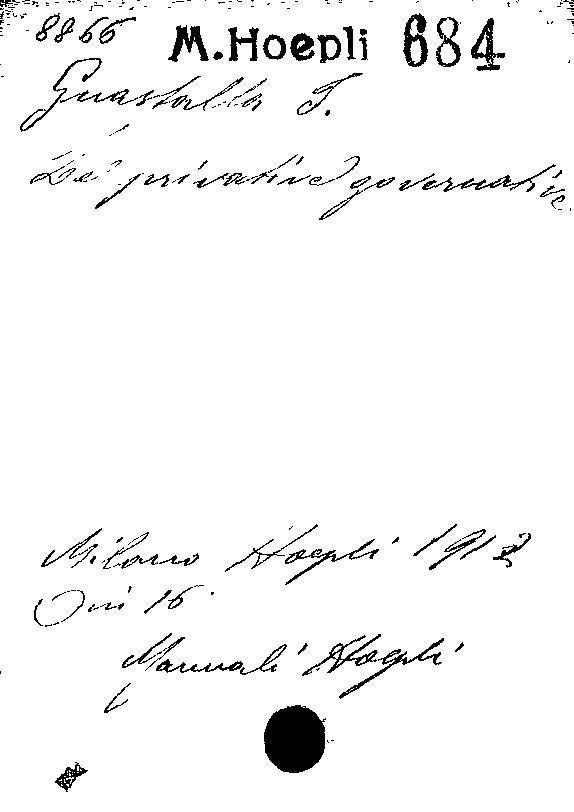 8866 M.Hoepli 684
Guastalla T.
Le privative governative
Milano Hoepli 1912
in 16
Manuali Hoepli